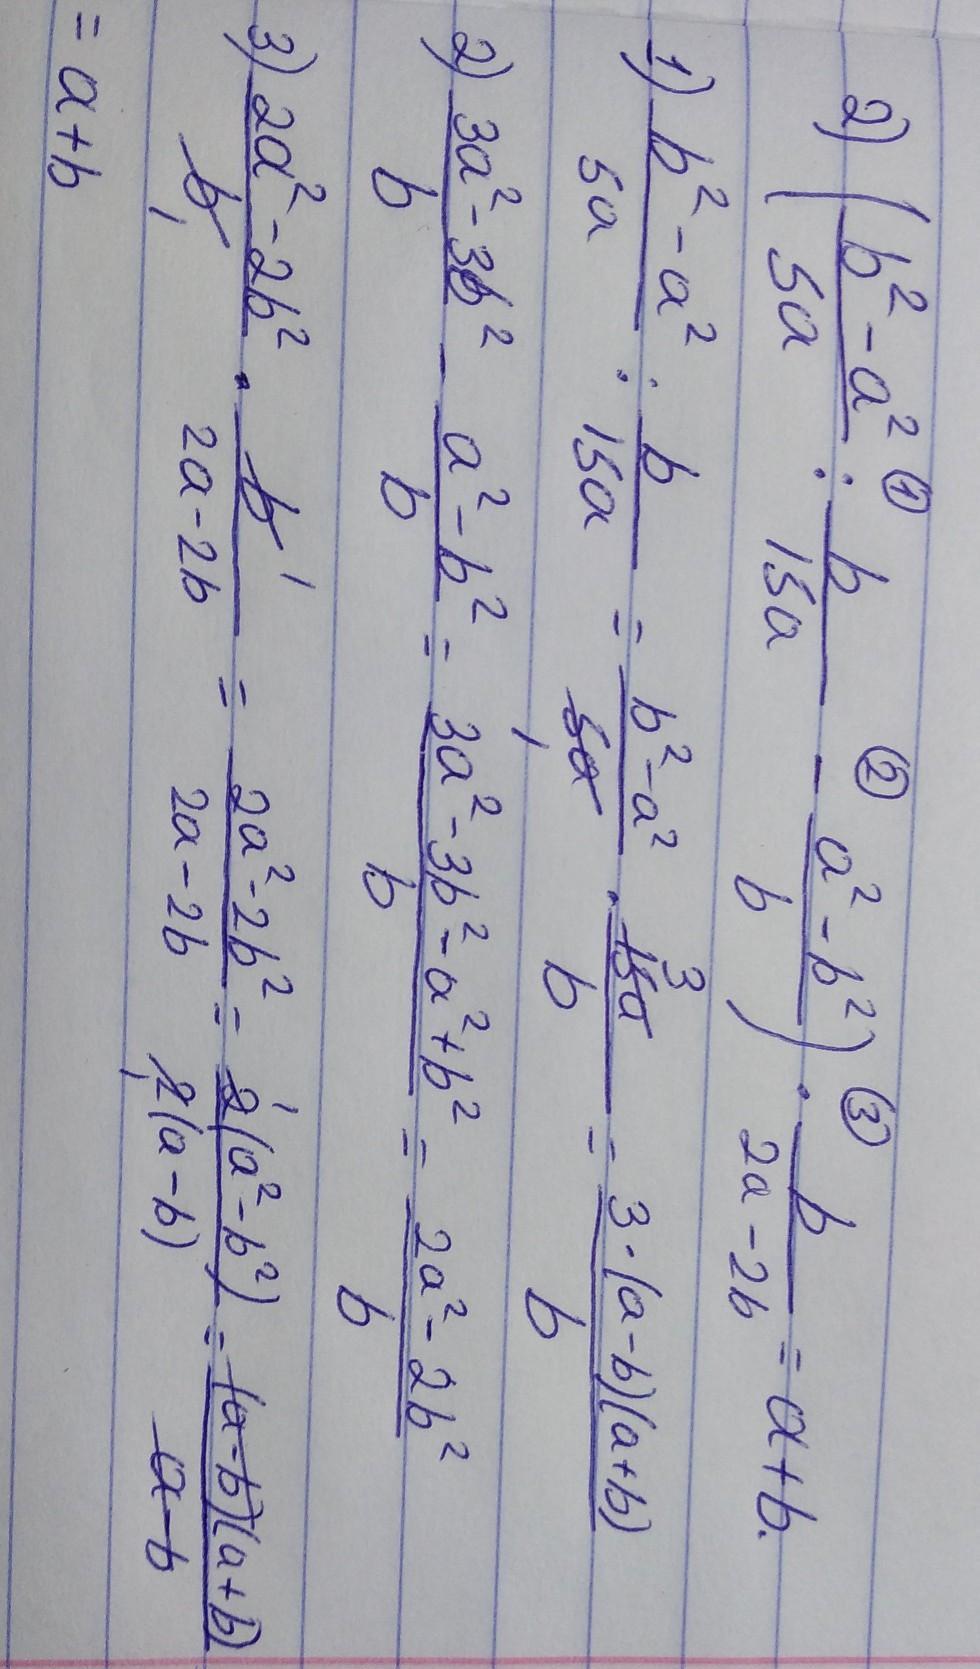 2) (b² - a² / 5a : ① b / 15a - ② a² - b² / b) · ③ b / 2a - 2b = a + b.
1) b² - a² / 5a : b / 15a = b² - a² / 5a 1 · 15a 3 / b = 3 · (a - b)(a + b) / b
2) 3a² - 3b² / b - a² - b² / b = 3a² - 3b² - a² + b² / b = 2a² - 2b² / b
3) 2a² - 2b² / b 1 · b 1 / 2a - 2b = 2a² - 2b² / 2a - 2b = 2 1 (a² - b²) / 2 1 (a - b) = (a - b)(a + b) / a - b
= a + b